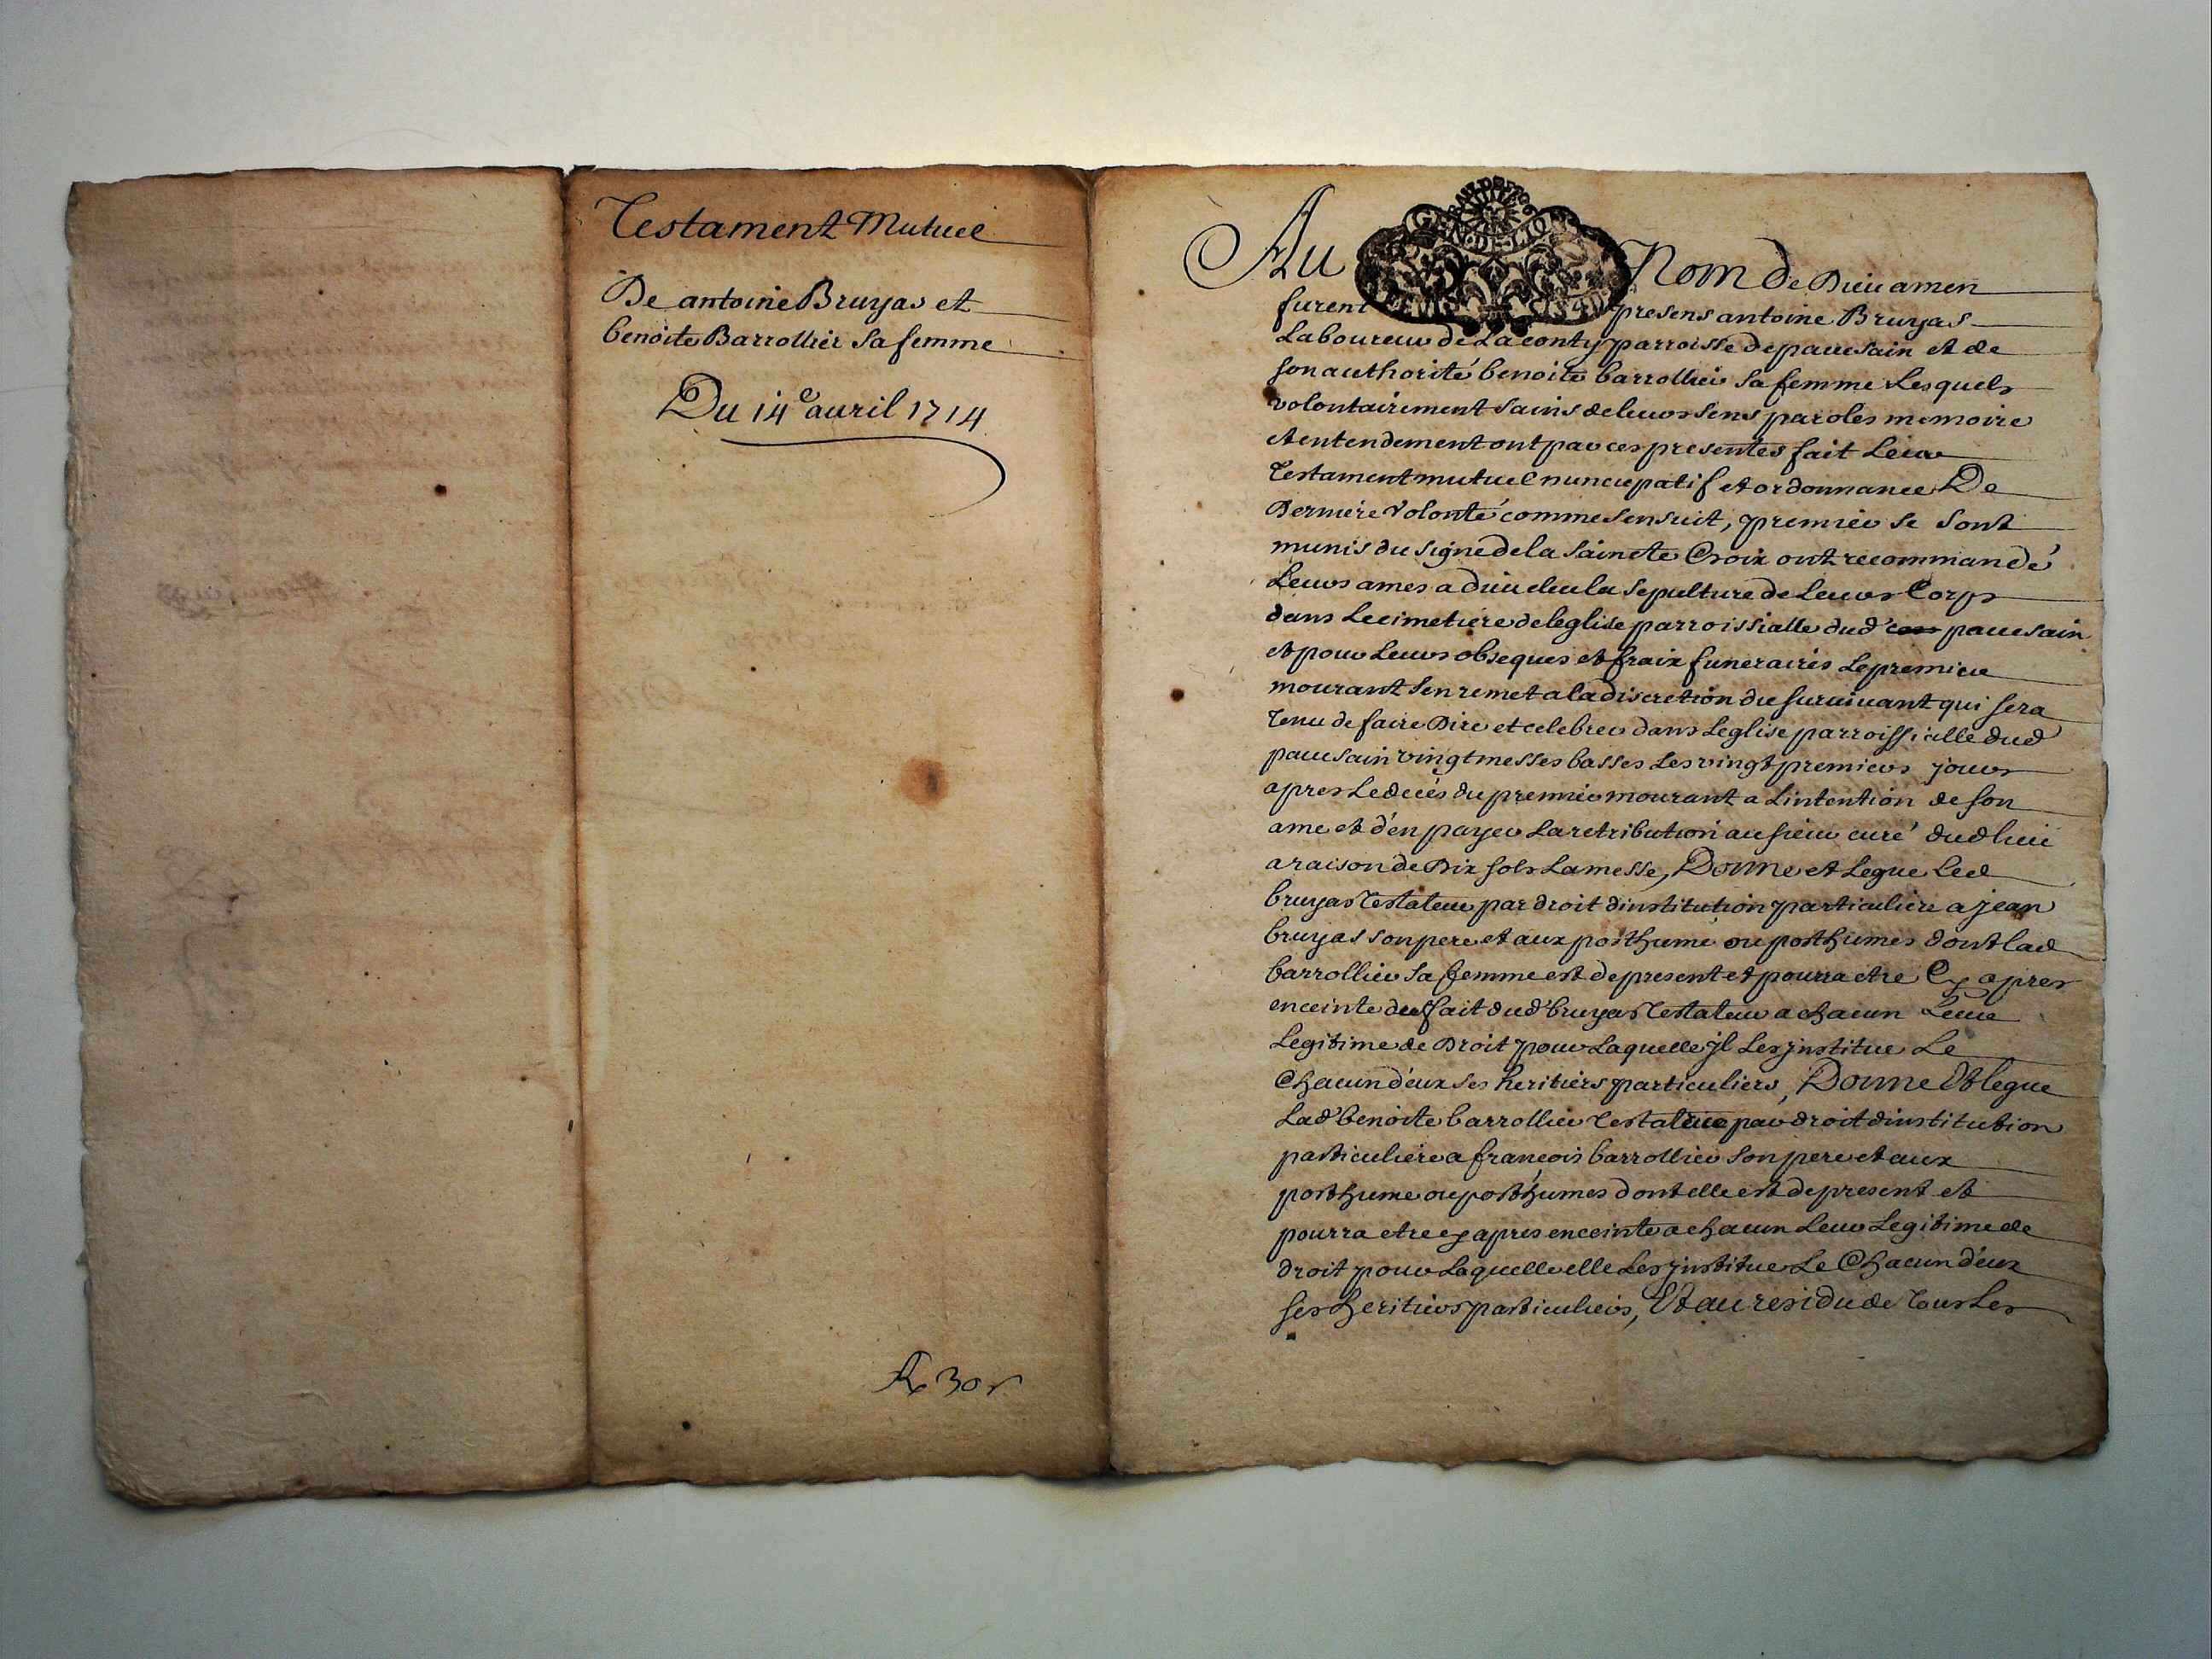 Testament Mutuel
De antoine Bruyas et
benoite Barrollier sa femme
Du 14e auril 1714
R 30 s
Au Nom de Dieu amen
furent presens antoine Bruyas
Laboureur de Laconty parroisse de pauesain et de
son authorité benoite barrollier sa femme Lesquels
volontairement sains de leurs sens paroles memoire
et entendement ont par ces presentes fait Leur
Testament mutuel nuncupatif et ordonnance De
Derniere volonté comme sensuit, premier se sont
munis du signe de la saincte Croix ont recommandé
Leurs ames a dieu eleu la sepulture de Leurs Corps
dans Le cimetiere de leglise parroissialle dud pauesain
et pour Leurs obseques et fraix funeraires Le premier
mourant sen remet a la discretion du suruiuant qui sera
Tenu de faire Dire et celebrer dans Leglise parroissialle dud
pauesain vingt messes basses Les vingt premiers jours
apres Le decés du premier mourant a Lintention de son
ame et d'en payer La retribution au sieur curé dud lieu
a raison de Dix sols La messe, Donne et Legue Led
bruyas Testateur par droit dinstitution particuliere a jean
bruyas son pere et aux posthume ou posthumes dont lad
barrollier sa femme est de present et pourra etre Cy apres
enceinte du fait dud bruyas Testateur a chacun Leur
Legitime de Droit pour Laquelle jl Les jnstitue Le
Chacun d'eux ses heritiers particuliers, Donne Et legue
Lad benoite barrollier Testatrice par droit dinstitution
particuliere a francois barrollier son pere et aux
posthume ou posthumes dont elle est de present et
pourra etre cy apres enceinte a chacun Leur Legitime de
droit pour Laquelle elle Les jnstitue Le Chacun d'eux
ses heritiers particuliers, Et au residu de Tous Les